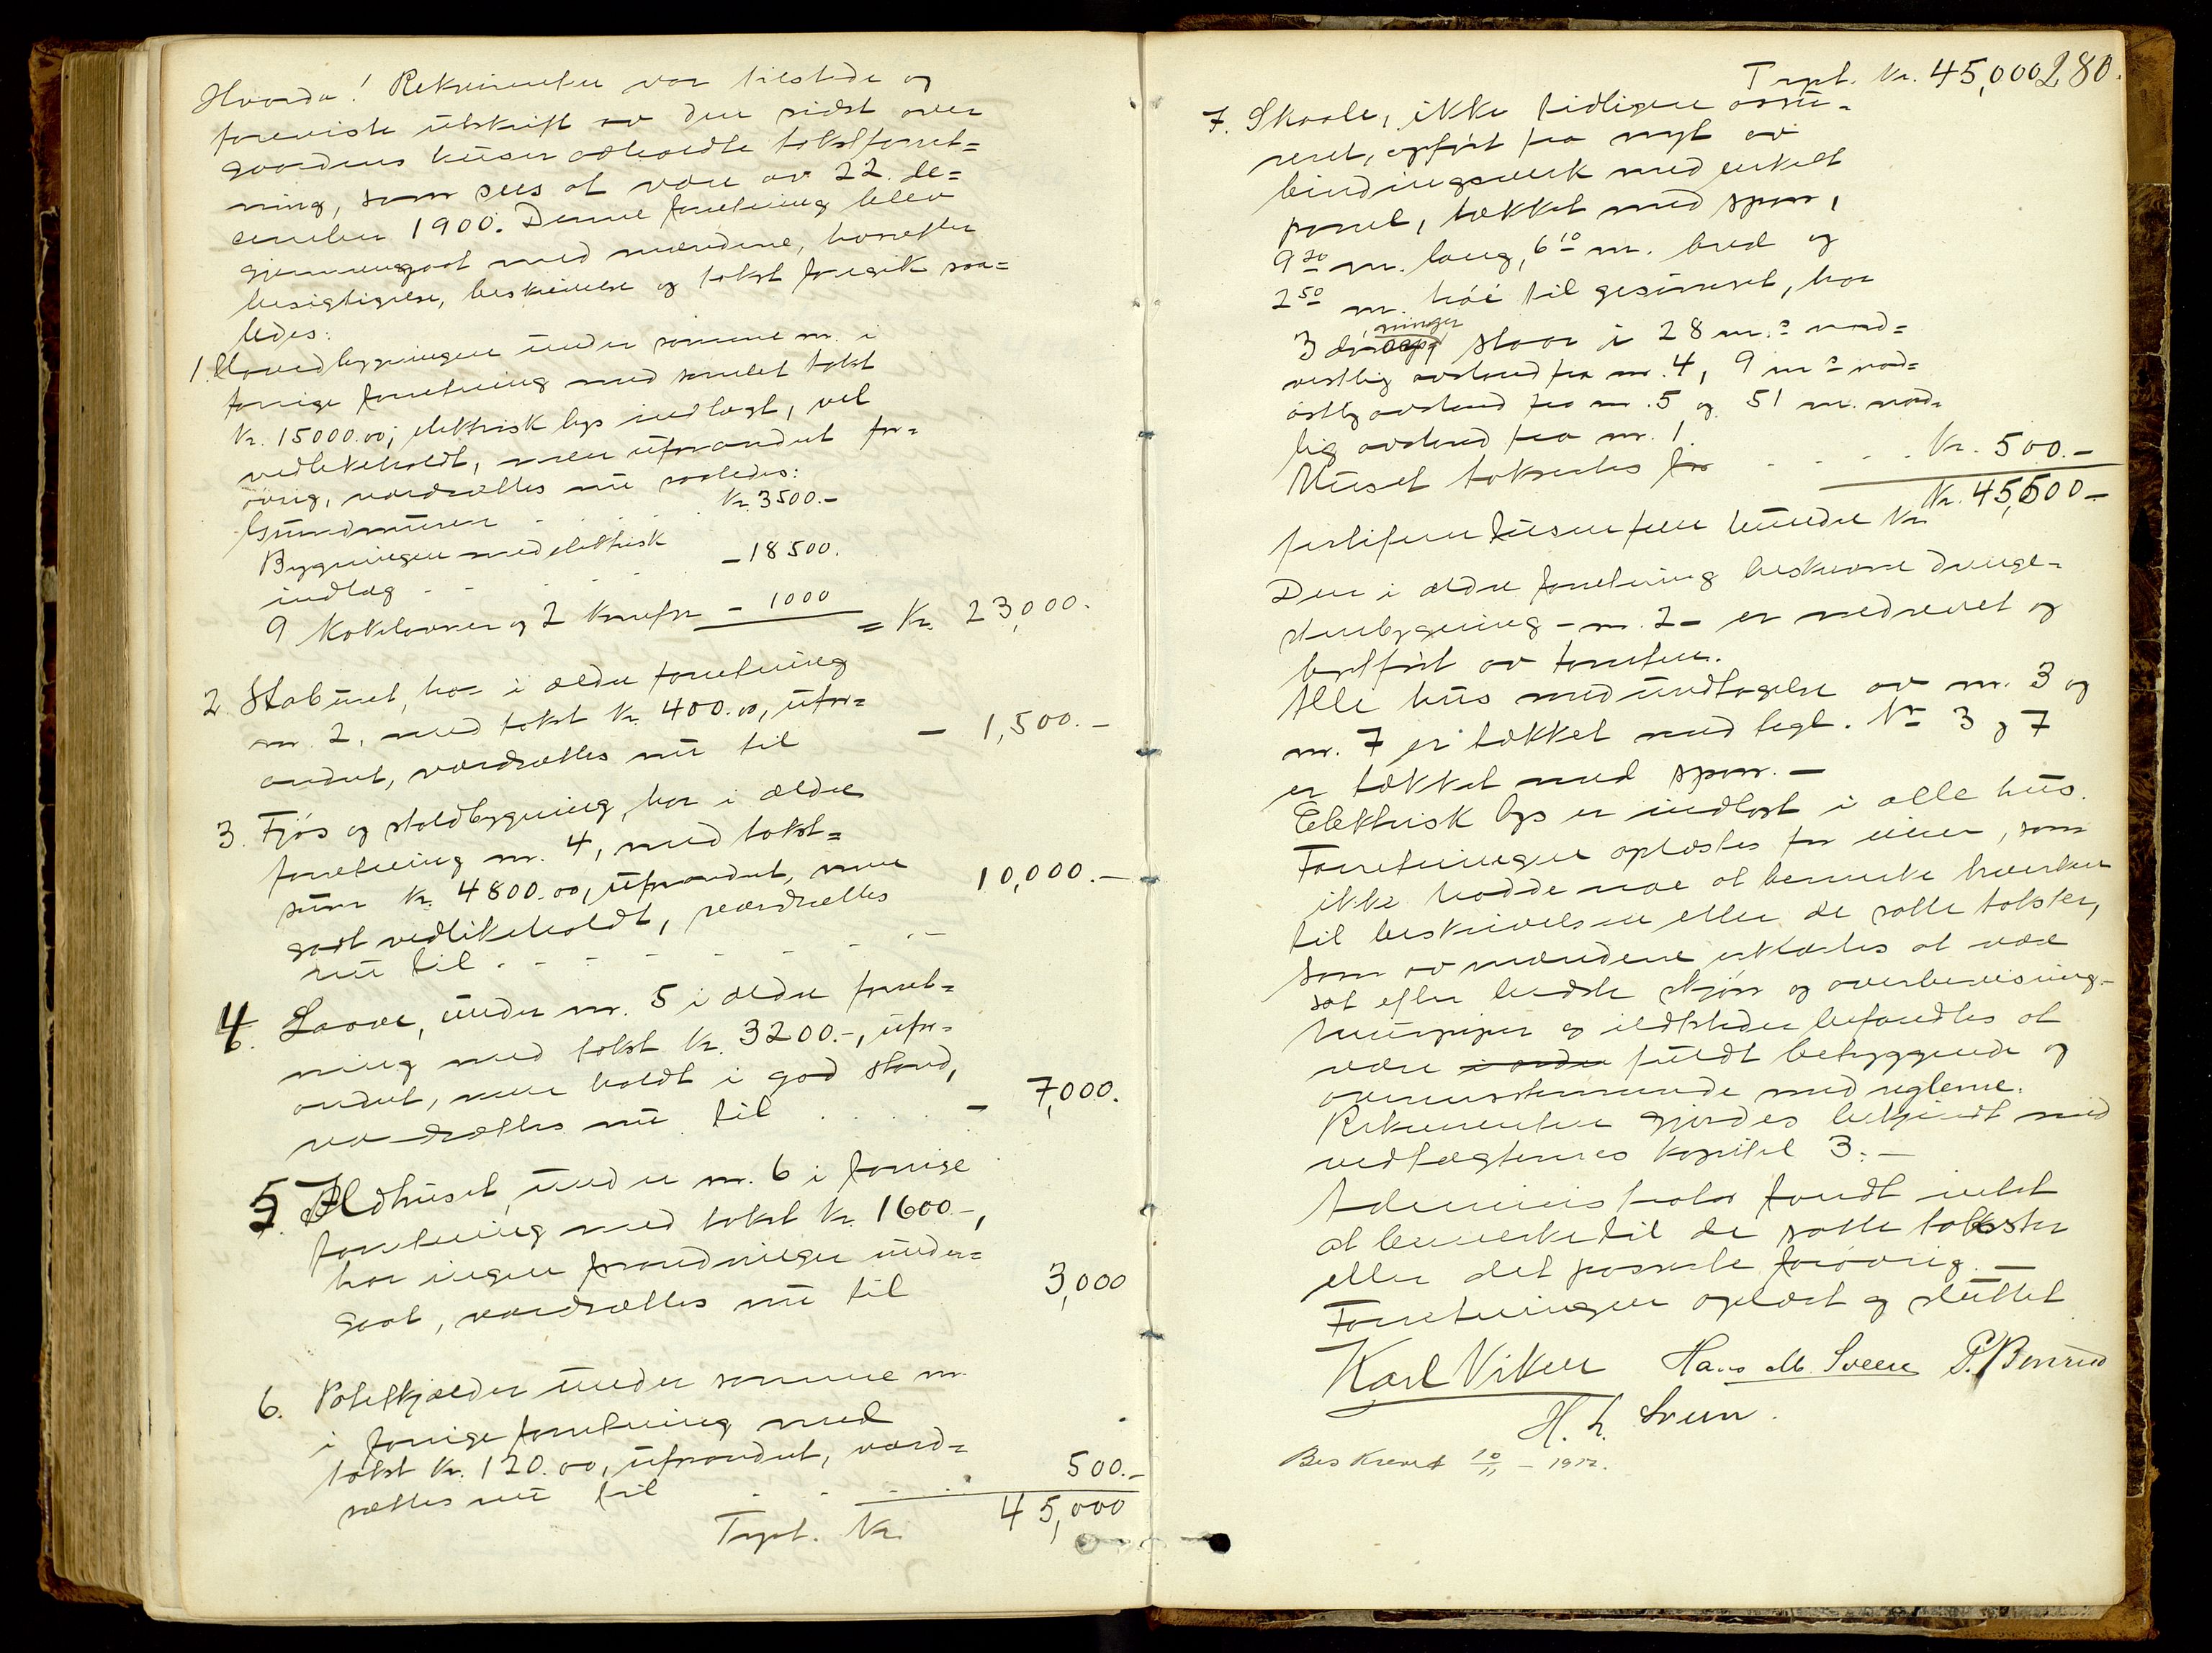 Hvorda! Rekvirenten var tilstede og
foreviste utskrift av den sidst over
gaardens huser avholdte takstforret=
ning, som sees at være av 22. de=
cember 1900. Denne forretning blev
gjennemgaat med mændene, hvorefter
besigtigelse, beskrivelse og takst foregik saa=
ledes:
1. Hovedbygningen under samme nr. i
forrige forretning med samlet takst
Kr. 15000.00; elektrisk lys indlagt, vel
vedlikeholdt, men uforandret for=
øvrig, værdsættes nu saaledes:
Grundmuren . . . . Kr. 3500.-
Bygningen med elektrisk
indlæg - - - - - 18500.
9 Kakelovner og 2 Komfyr - 1000 = Kr. 23,000.
2. Staburet, har i ældre forretning
nr. 2, med takst Kr. 400.00, ufor=
andret, værdsættes nu til - 1,500.-
3. Fjøs og staldbygning, har i ældre
forretning nr. 4, med takst=
sum Kr. 4800.00, uforandret, men
godt vedlikeholdt, værdsættes 10,000.-
nu til - - - - - -
4. Laave, under nr. 5 i ældre forret=
ning med takst Kr. 3200.-, ufor=
andret, men holdt i god stand,
værdsættes nu til . . . . - 7,000.
5. Ildhuset, under nr. 6 i forrige
forretning med takst Kr. 1600.-,
har ingen forandringer under=
gaat, værdsættes nu til 3,000
6. Potetkjælder under samme nr.
i forrige forretning med
takst Kr. 120.00, uforandret, værd=
sættes nu til . . . . 500.-
Trpt. Kr. 45,000
Trpt. Kr. 45,000 280.
7. Skaale, ikke tidligere assu=
reret, opført fra nyt av
bindingsverk med enkelt
panel, tækket med spon,
9 20 m. lang, 6 10 m. bred og
2 50 m. høi til gesimset, har
3 aapninger staar i 28 m.s nord=
vestlig avstand fra nr. 4, 9 m.s nord=
østlig avstand fra nr. 5 og 51 m. nord=
lig avstand fra nr. 1.
Huset takseres for . . . . Kr. 500.-
Kr. 45,500-
førtifem tusen fem hundre Kr.
Den i ældre forretning beskrevne drenge=
stuebygning - nr. 2 - er nedrevet og
bortført av tomten.
Alle hus med undtagelse av nr. 3 og
nr. 7 er tækket med tegl. Nr 3 og 7
er tækket med spon. -
Elektrisk lys er indlagt i alle hus.
Forretningen oplæstes for eieren, som
ikke hadde noe at bemerke hverken
til beskrivelsen eller de satte takster,
som av mændene erklæres at være
sat efter bedste skjøn og overbevisning.-
Murpiper og ildsteder befandtes at
være i orden fuldt betryggende og
overensstemmende med reglerne.
Rekvirenten gjordes bekjendt med
vedtægternes kapitel 3.-
Administrator fandt intet
at bemerke til de satte takster
eller det passerte forøvrig.-
Forretningen oplæst og sluttet
Karl Viken Hans M. Sveen P. Benrud
H. L. Sveen.
Beskrevet 10/11 - 1917.